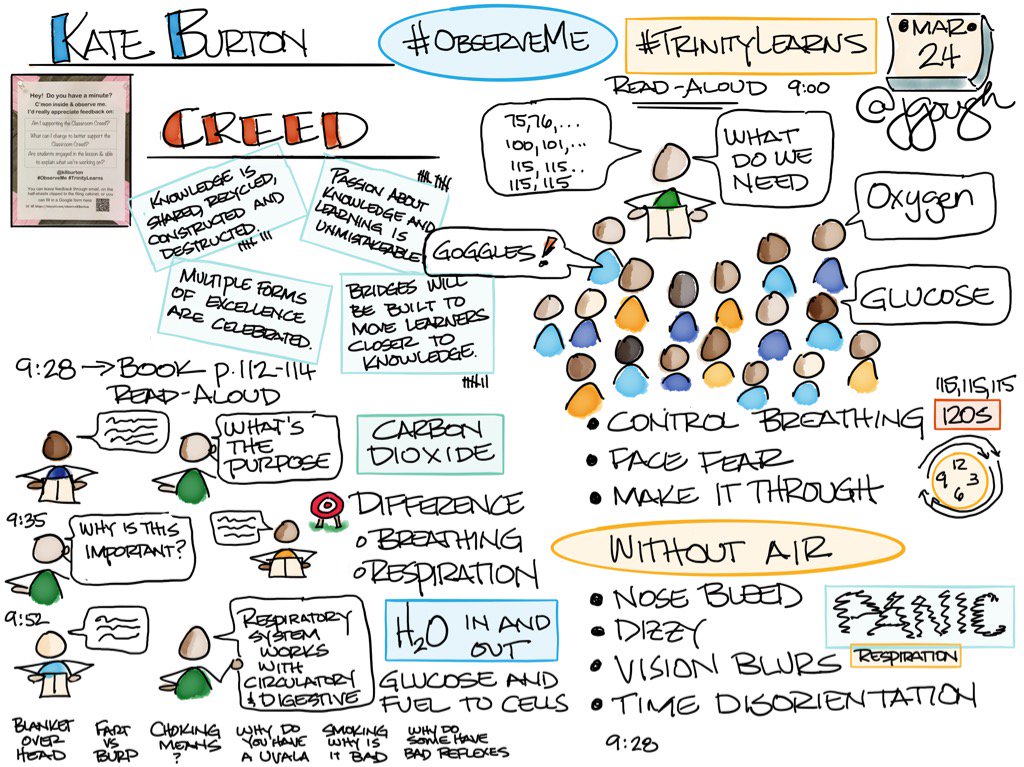 KATE BURTON
#OBSERVEME
#TRINITYLEARNS
MAR
24
@jgough
Hey! Do you have a minute?
C'mon inside & observe me.
I'd really appreciate feedback on:
Am I supporting the Classroom Creed?
What can I change to better support the
Classroom Creed?
Are students engaged in the lesson & able
to explain what we're working on?
@kllburton
#ObserveMe #TrinityLearns
CREED
KNOWLEDGE IS
SHARED, RECYCLED,
CONSTRUCTED AND
DESTRUCTED
PASSION ABOUT
KNOWLEDGE AND
LEARNING IS
UNMISTAKEABLE
MULTIPLE FORMS
OF EXCELLENCE
ARE CELEBRATED.
BRIDGES WILL
BE BUILT TO
MOVE LEARNERS
CLOSER TO
KNOWLEDGE.
READ-ALOUD 9:00
75,76,...
100,101,...
115,115...
115,115
WHAT
DO WE
NEED
GOGGLES!
OXYGEN
GLUCOSE
• CONTROL BREATHING
• FACE FEAR
• MAKE IT THROUGH
115,115,115
120S
12
9 3
6
WITHOUT AIR
• NOSE BLEED
• DIZZY
• VISION BLURS
• TIME DISORIENTATION
PANIC
RESPIRATION
9:28
9:28 → BOOK p.112-114
READ-ALOUD
WHAT'S
THE
PURPOSE
CARBON
DIOXIDE
9:35
WHY IS THIS
IMPORTANT?
DIFFERENCE
o BREATHING
o RESPIRATION
9:52
RESPIRATORY
SYSTEM
WORKS
WITH
CIRCULATORY
& DIGESTIVE
H2O IN AND
OUT
GLUCOSE AND
FUEL TO CELLS
BLANKET
OVER
HEAD
FART
VS
BURP
CHOKING
MEANS
?
WHY DO
YOU HAVE
A UVALA
SMOKING
WHY IS
IT BAD
WHY DO
SOME HAVE
BAD REFLEXES